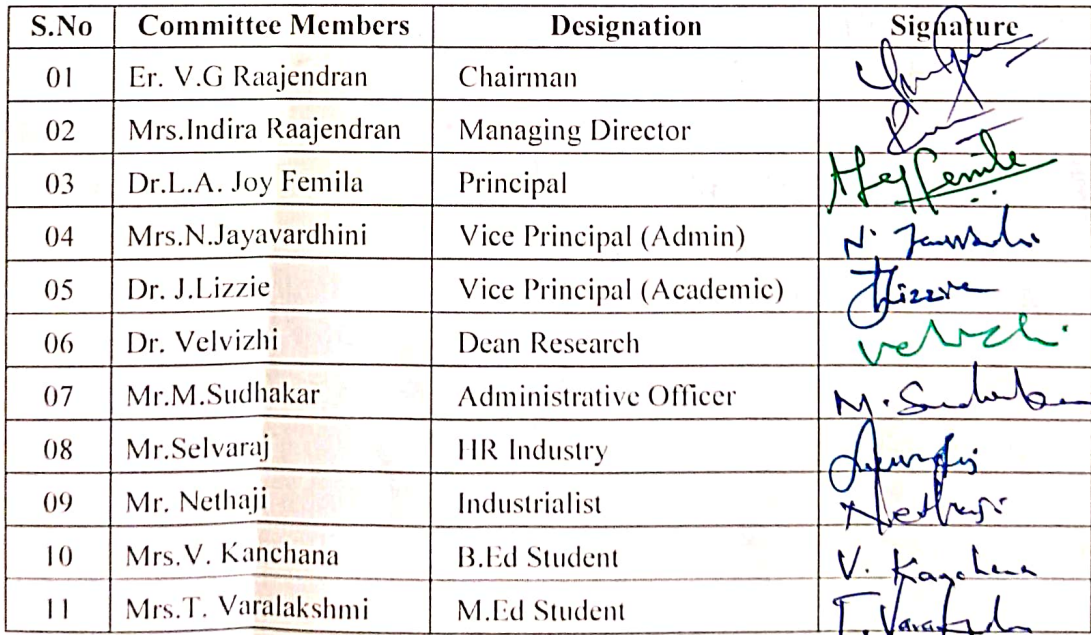 S.No Committee Members Designation Signature
01 Er. V.G Raajendran Chairman
02 Mrs.Indira Raajendran Managing Director
03 Dr.L.A. Joy Femila Principal
04 Mrs.N.Jayavardhini Vice Principal (Admin) N.
05 Dr. J.Lizzie Vice Principal (Academic) JLizzie
06 Dr. Velvizhi Dean Research
07 Mr.M.Sudhakar Administrative Officer M.
08 Mr.Selvaraj HR Industry
09 Mr. Nethaji Industrialist Nethaji
10 Mrs.V. Kanchana B.Ed Student V. Kanchana
11 Mrs.T. Varalakshmi M.Ed Student T.